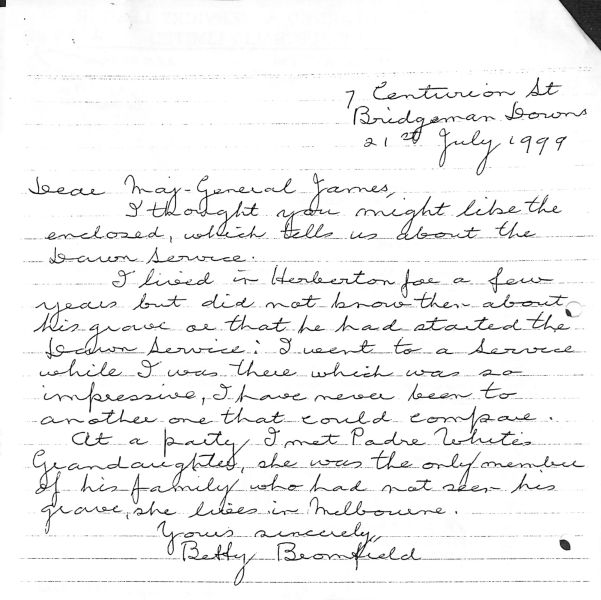 7 Centurion St
Bridgeman Downs
21st July 1999
Dear Maj-General James,
I thought you might like the
enclosed, which tells us about the
Dawn Service.
I lived in Herberton for a few
years but did not know then about
his grave or that he had started the
Dawn Service: I went to a service
while I was there which was so
impressive, I have never been to
another one that could compare.
At a party I met Padre White's
Grandaughter, she was the only member
of his family who had not seen his
grave, she lives in Melbourne.
Yours sincerely,
Betty Bromfield